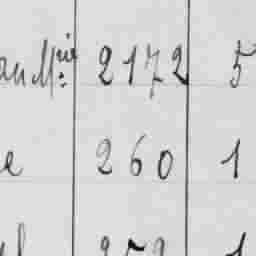 an Mrie 2172 5
e 260 1